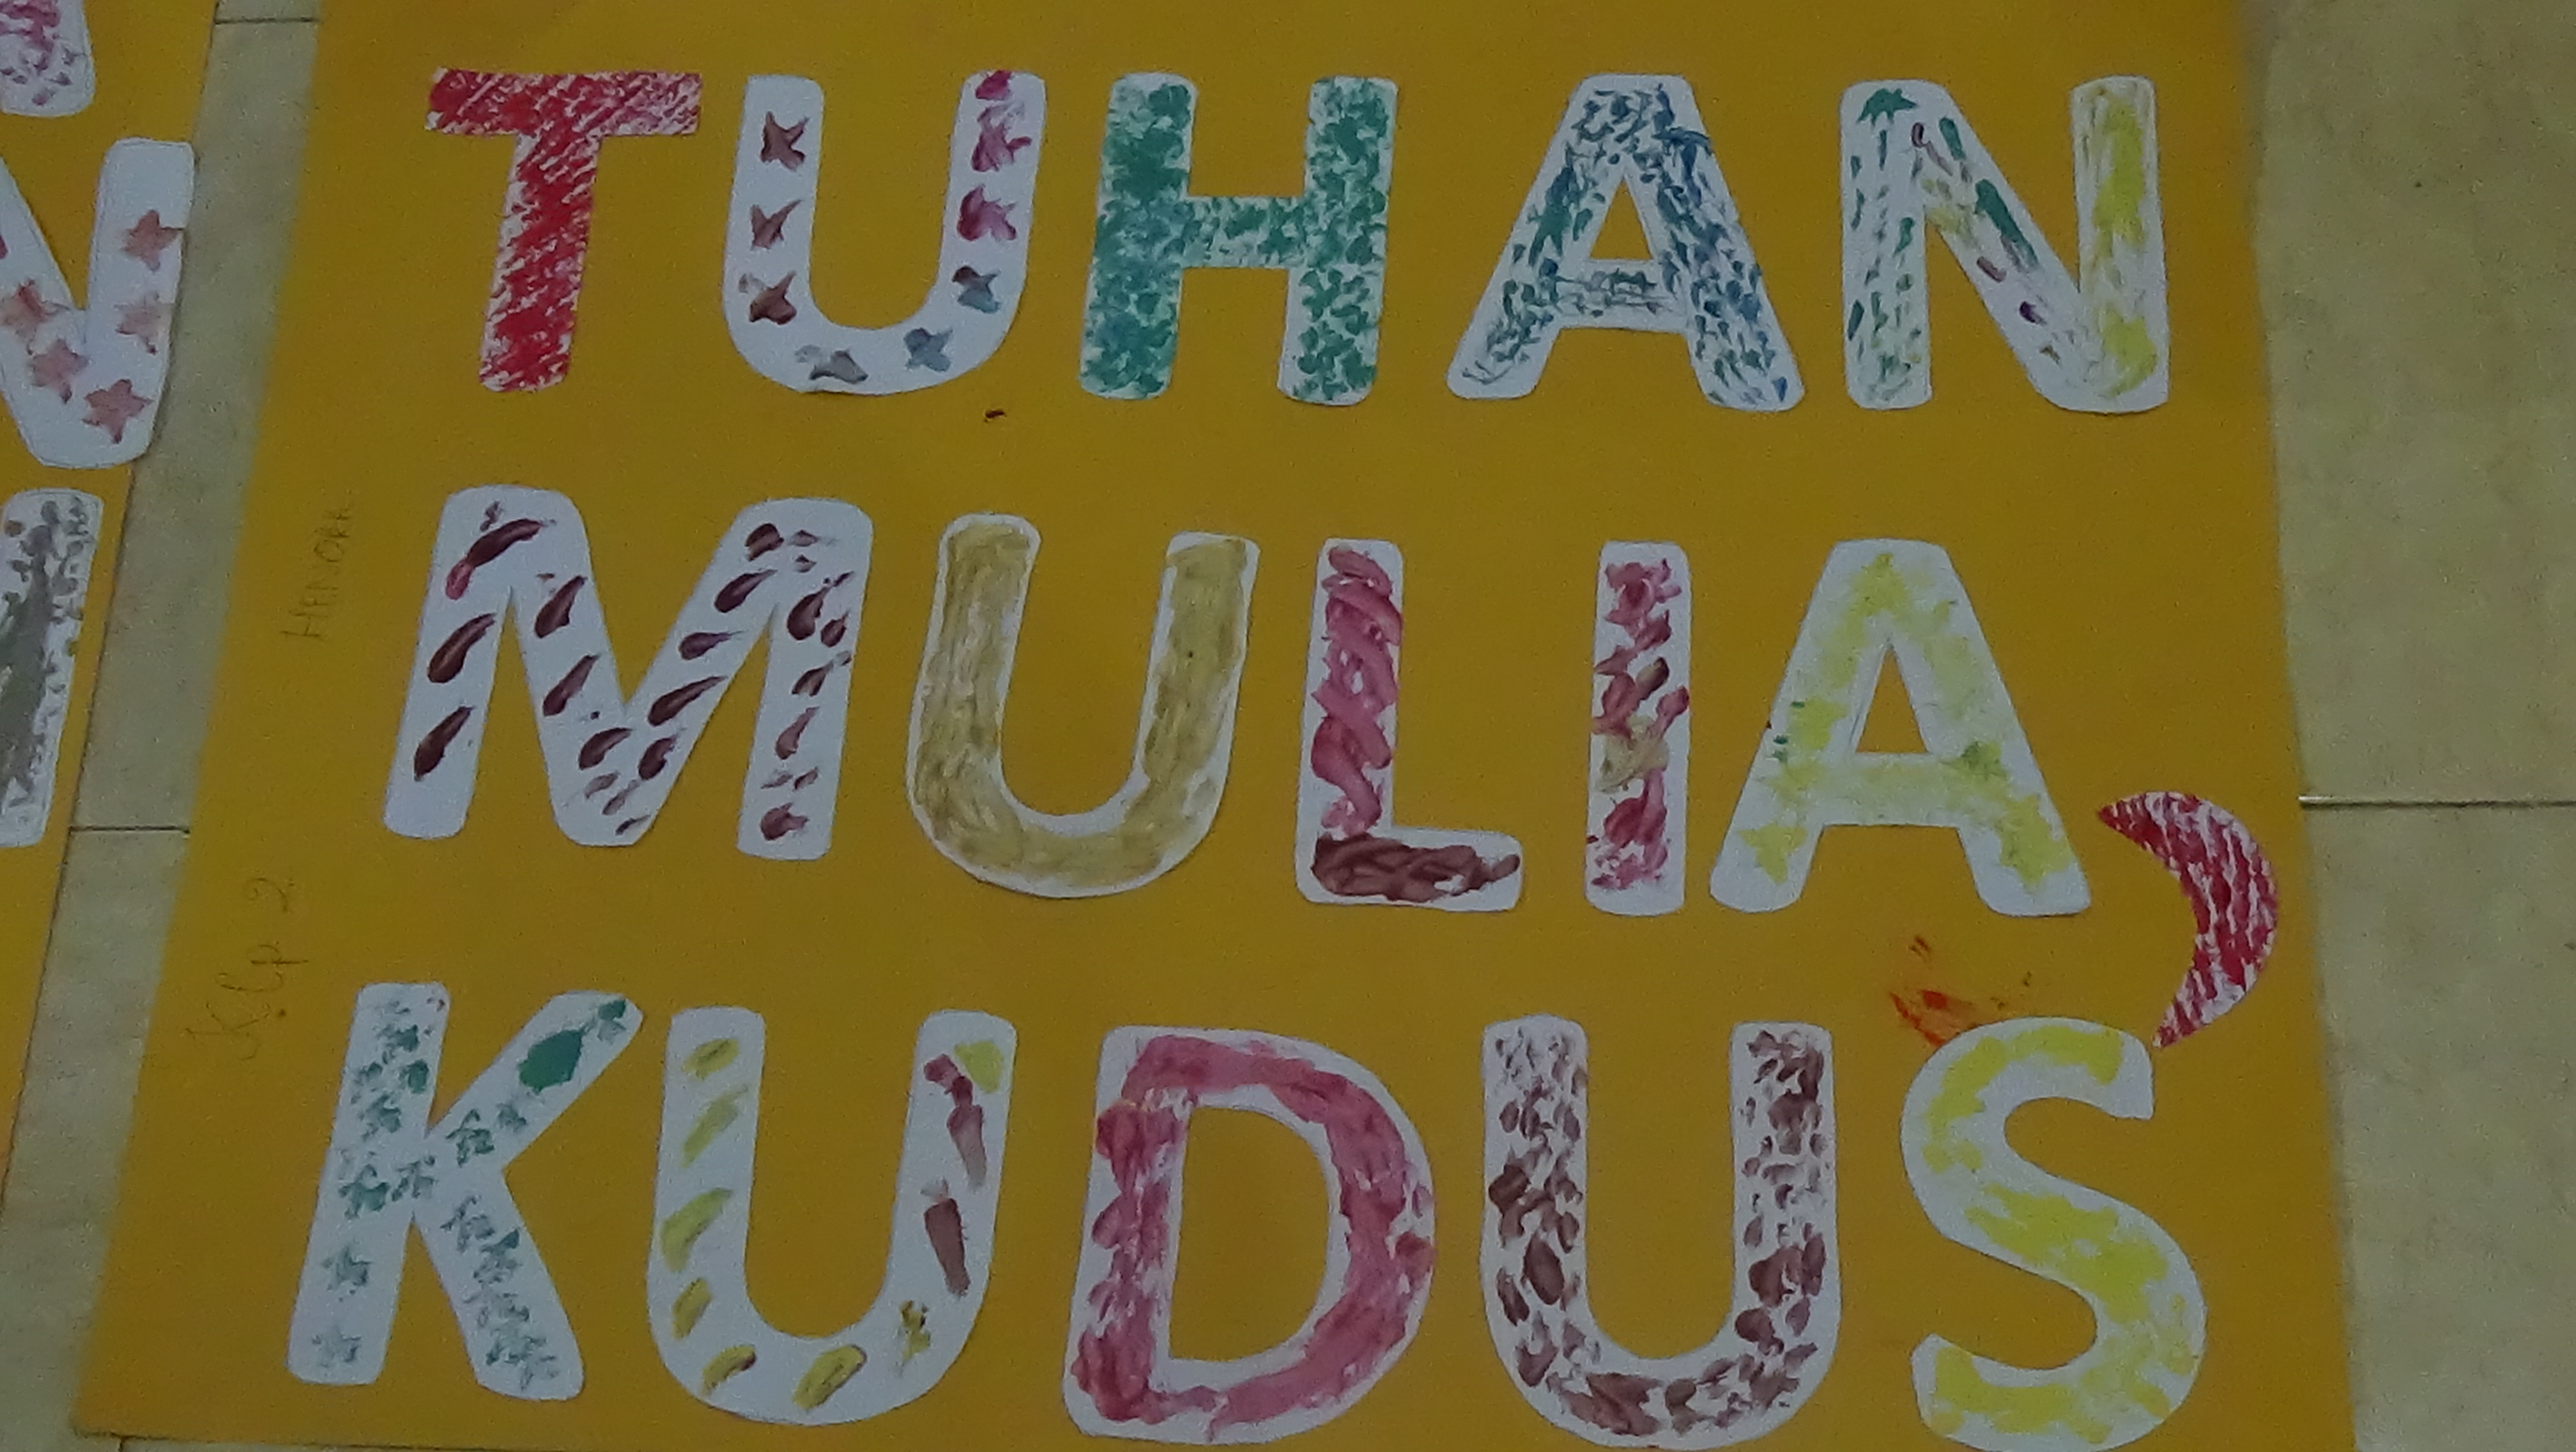 TUHAN
MULIA,
KUDUS
Klp 2